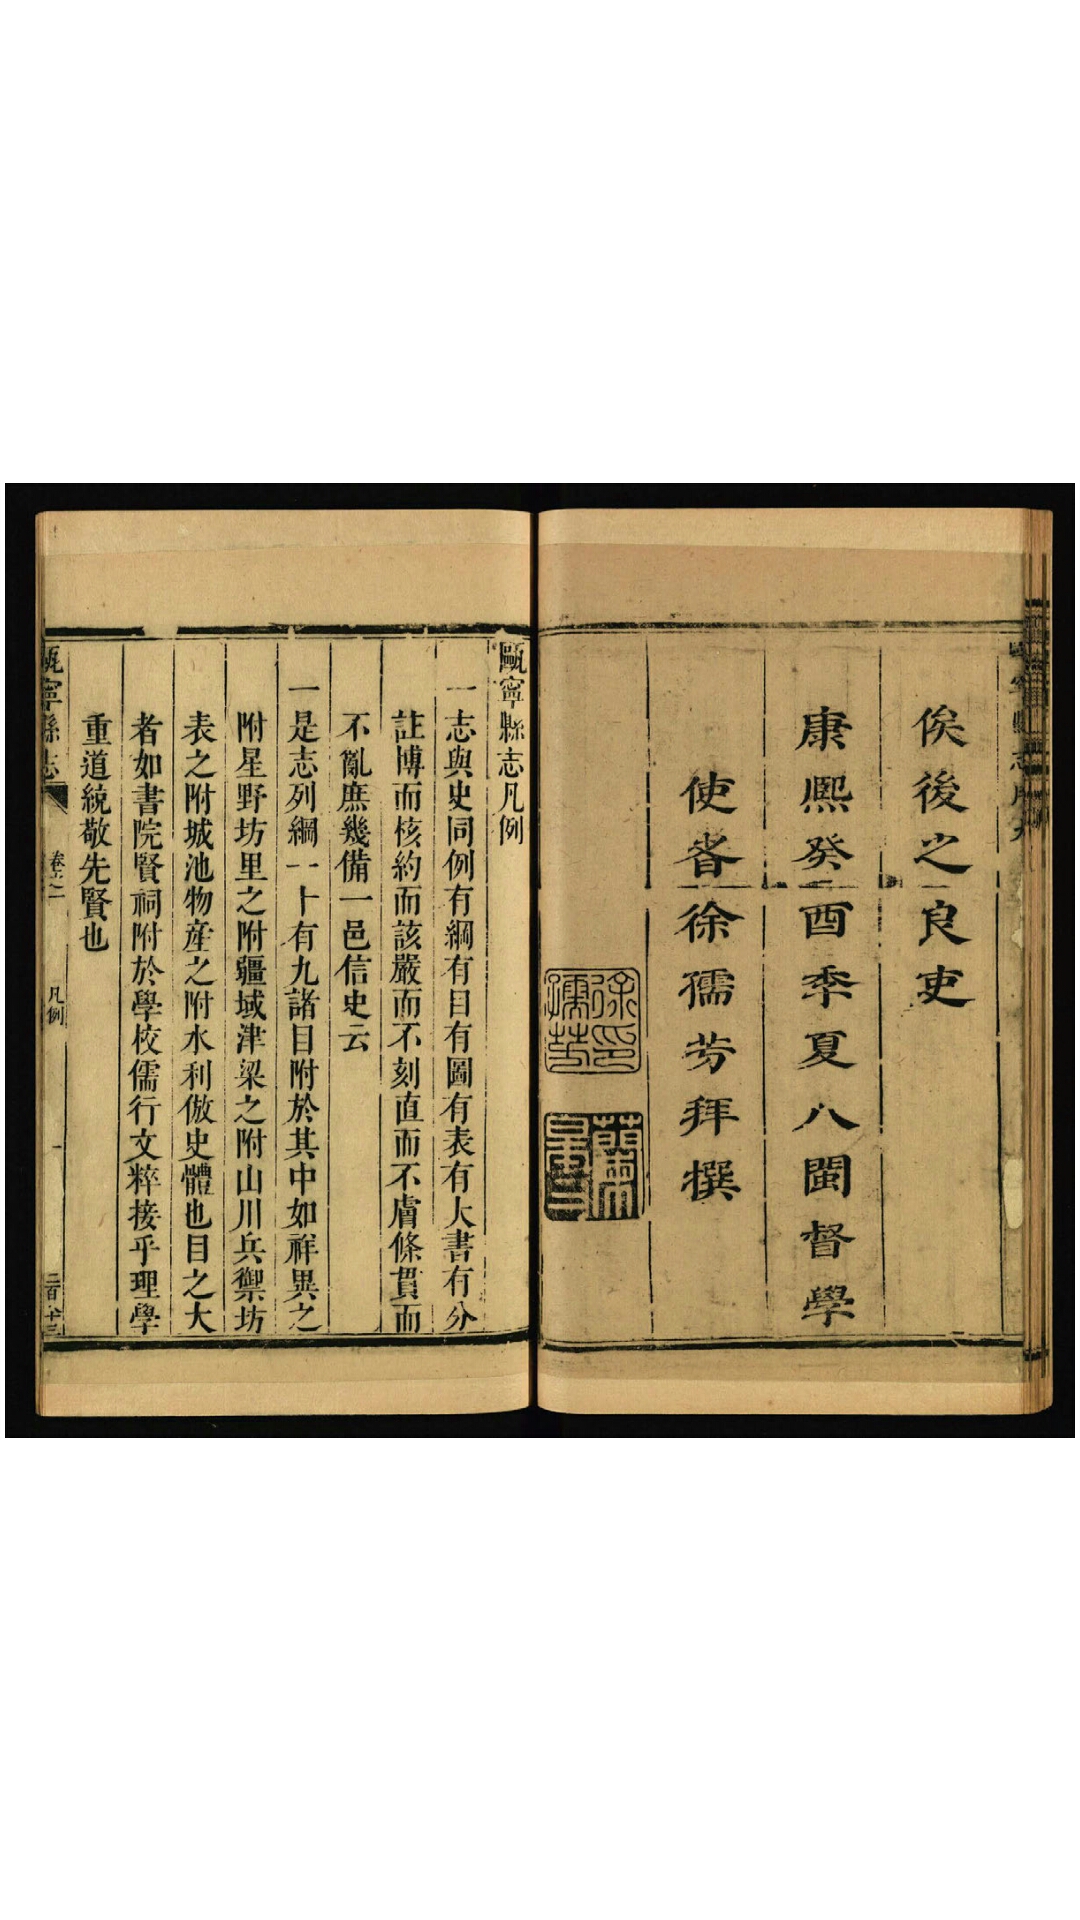 俟後之良吏
康熈癸酉季夏八閩督學
使者徐孺芳拜撰
徐印孺芳
甌寧縣志凡例
一志與史同例有綱有目有圖有表有大書有分
註博而核約而該嚴而不刻直而不膚條貫而
不亂庶幾備一邑信史云
一是志列綱一十有九諸目附於其中如祥異之
附星野坊里之附疆域津梁之附山川兵禦坊
表之附城池物産之附水利倣史體也目之大
者如書院賢祠附於學校儒行文粹接乎理學
重道統敬先賢也
甌寧縣志
凡例
一